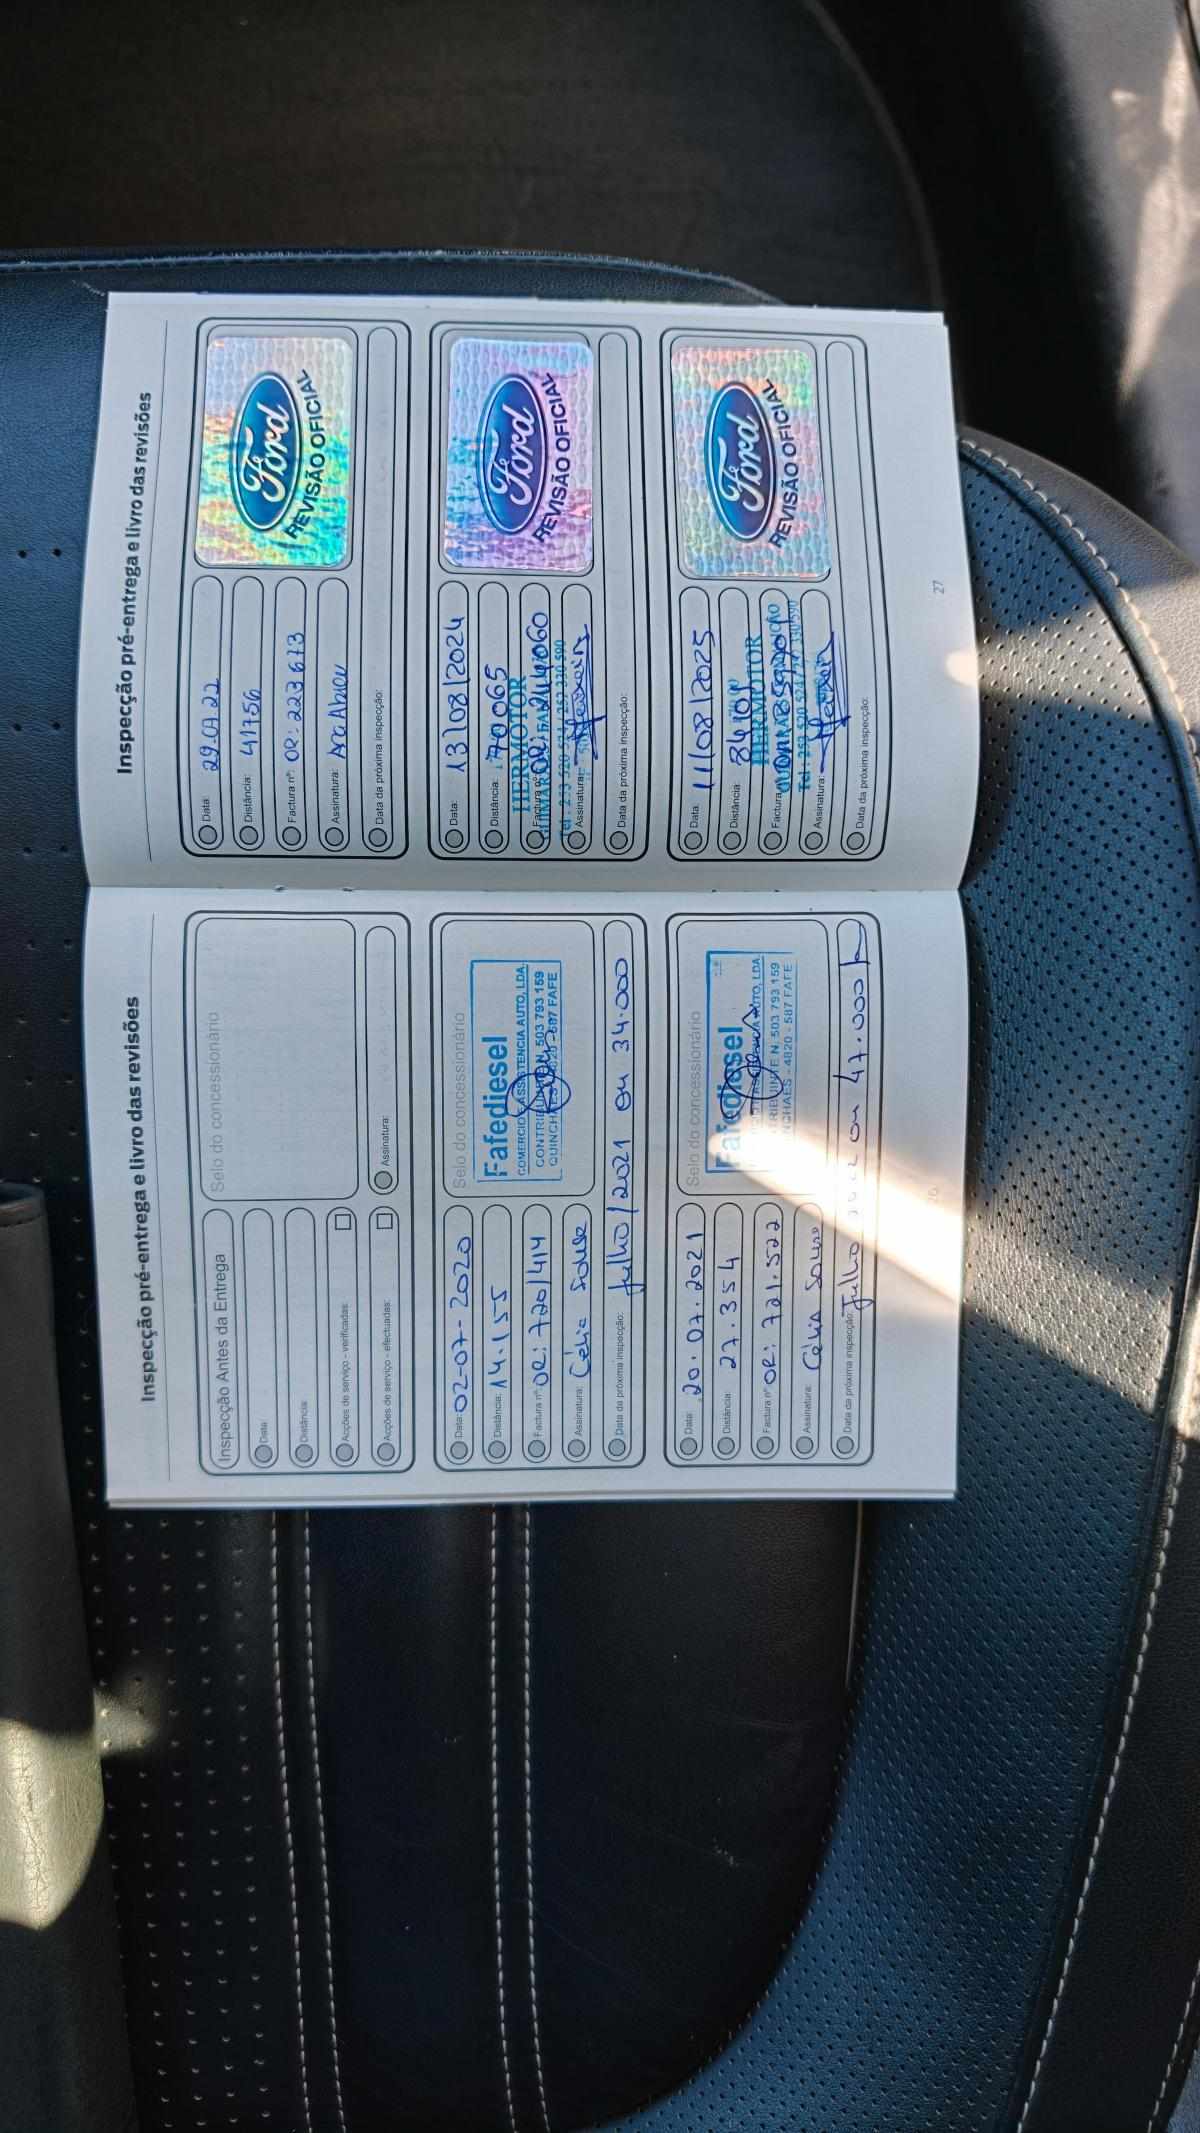 Inspecção pré-entrega e livro das revisões
Inspecção Antes da Entrega
Data
Distância:
Acções de serviço - verificadas:
Acções de serviço - efectuadas:
Selo do concessionário
Assinatura:
Data: 02-07-2020
Distância: 14.155
Factura nº: OR: 720/414
Assinatura: Célia Sousa
Data da próxima inspecção: Julho/2021 ou 34.000
Selo do concessionário
Fafediesel
COMERCIO ASSISTENCIA AUTO, LDA.
CONTRIBUINTE N. 503 793 159
QUINCHAES - 4820 - 587 FAFE
Data: 20.07.2021
Distância: 27.354
Factura nº OR: 721.522
Assinatura: Célia Sousa
Data da próxima inspecção: Julho 2022 ou 47.000 k
Selo do concessionário
Fafediesel
ASSISTENCIA AUTO, LDA.
CONTRIBUINTE N. 503 793 159
QUINCHAES - 4820 - 587 FAFE
26
Inspecção pré-entrega e livro das revisões
Data:
Distância: 41756
Factura nº: OR: 223613
Assinatura: Ana Abreu
Data da próxima inspecção:
Ford
REVISÃO OFICIAL
Data: 13/08/2024
Distância: 70065
HERMOTOR
Factura nº
Assinatura:
Data da próxima inspecção:
Ford
REVISÃO OFICIAL
Data: 11/08/2025
Distância:
HERMOTOR
Factura
Tel.: 253 520
Assinatura:
Data da próxima inspecção:
Ford
REVISÃO OFICIAL
27